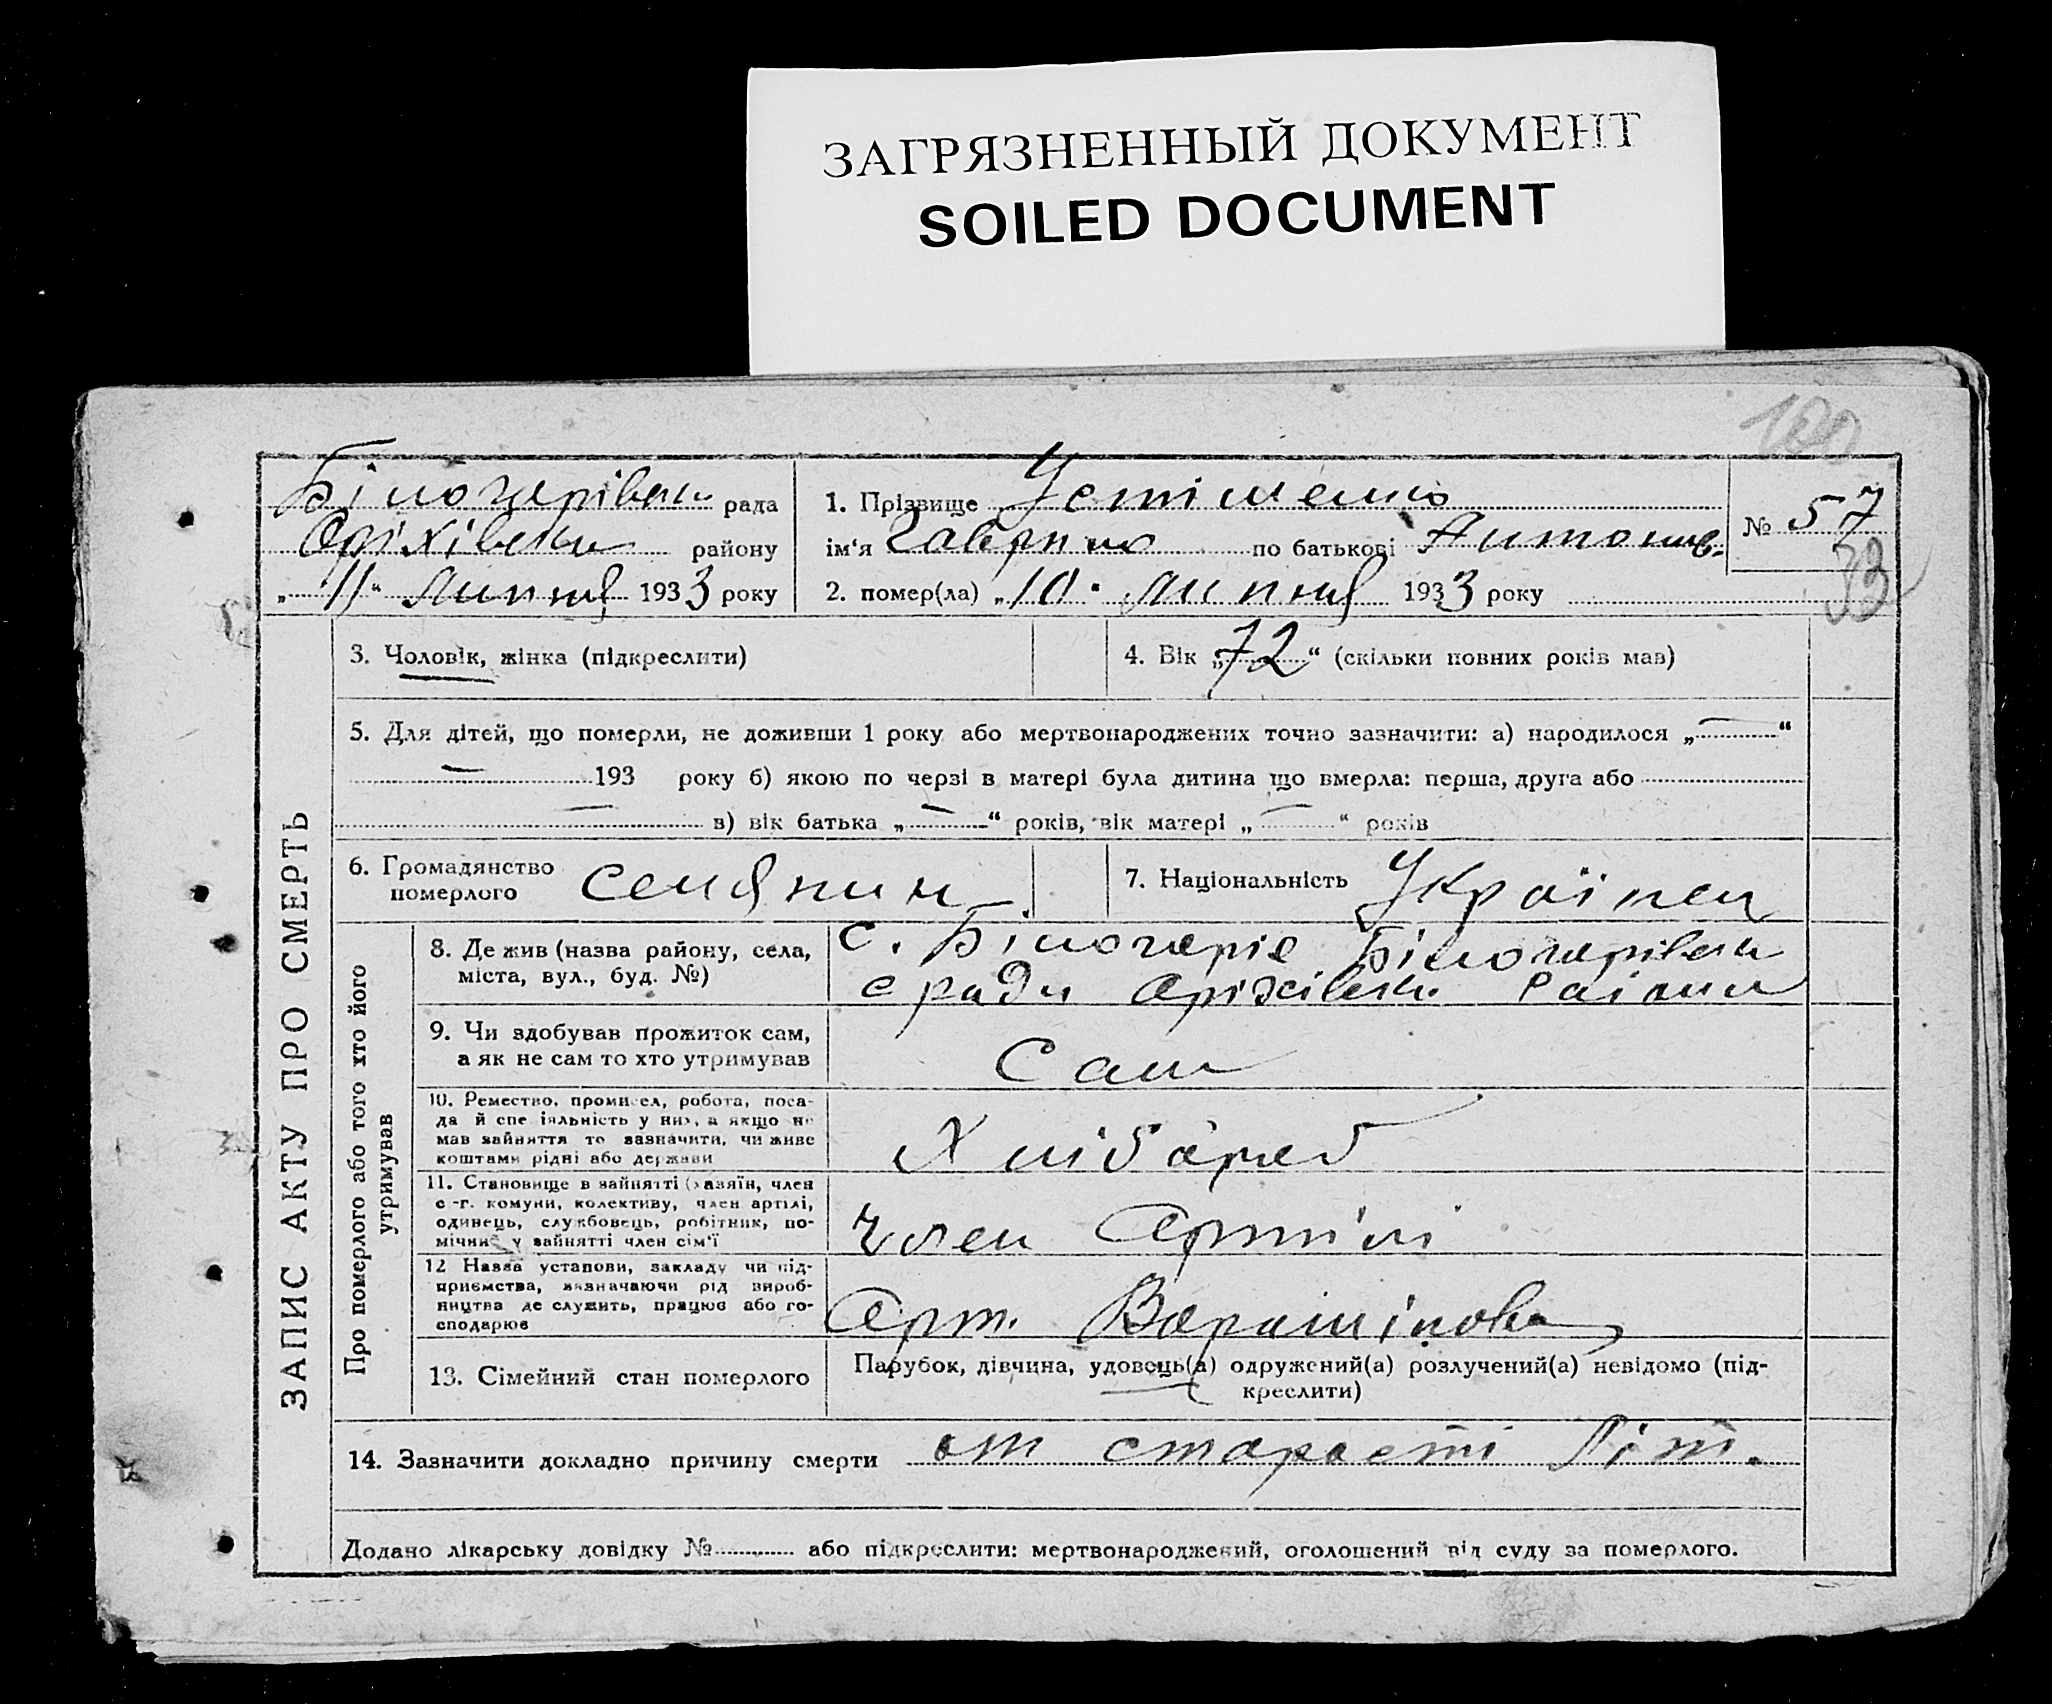 ЗАГРЯЗНЕННЫЙ ДОКУМЕНТ
SOILED DOCUMENT
100
Білогарівськ рада
Оріхівськ району
„11“ липня 1933 року
1. Прізвище Устіменко
ім'я Гаврило по батькові Антонив.
2. помер(ла) „10“ липня 1933 року
№ 57
33
ЗАПИС АКТУ ПРО СМЕРТЬ
3. Чоловік, жінка (підкреслити)
4. Вік „72“ (скільки повних років мав)
5. Для дітей, що померли, не доживши 1 року або мертвонароджених точно зазначити: а) народилося „—“
— 193 року б) якою по черзі в матері була дитина що вмерла: перша, друга або
— в) вік батька „—“ років, вік матері „—“ років
6. Громадянство
померлого
селянин
7. Національність Українец
Про померлого або того хто його
утримував
8. Де жив (назва району, села,
міста, вул., буд. №)
с. Білогаріє Білогарівськ
с ради Оріхівськ. Раіони
9. Чи здобував прожиток сам,
а як не сам то хто утримував
Сам
10. Ремество, промисел, робота, поса-
да й спеціяльність у них, а якщо не
мав зайняття то зазначити, чи живе
коштами рідні або держави
Хлібароб
11. Становище в зайнятті (хазяїн, член
с-г. комуни, колективу, член артілі,
одинець, службовець, робітник, по-
мічник у зайнятті член сім'ї
Член Артілі
12 Назва установи, закладу чи під-
приємства, зазначаючи рід вироб-
ництва де служить, працює або го-
сподарює
Арт. Ворошілова
13. Сімейний стан померлого
Парубок, дівчина, удовець(а) одружений(а) розлучений(а) невідомо (під-
креслити)
14. Зазначити докладно причину смерти от старості Літ.
Додано лікарську довідку № або підкреслити: мертвонароджений, оголошений від суду за померлого.